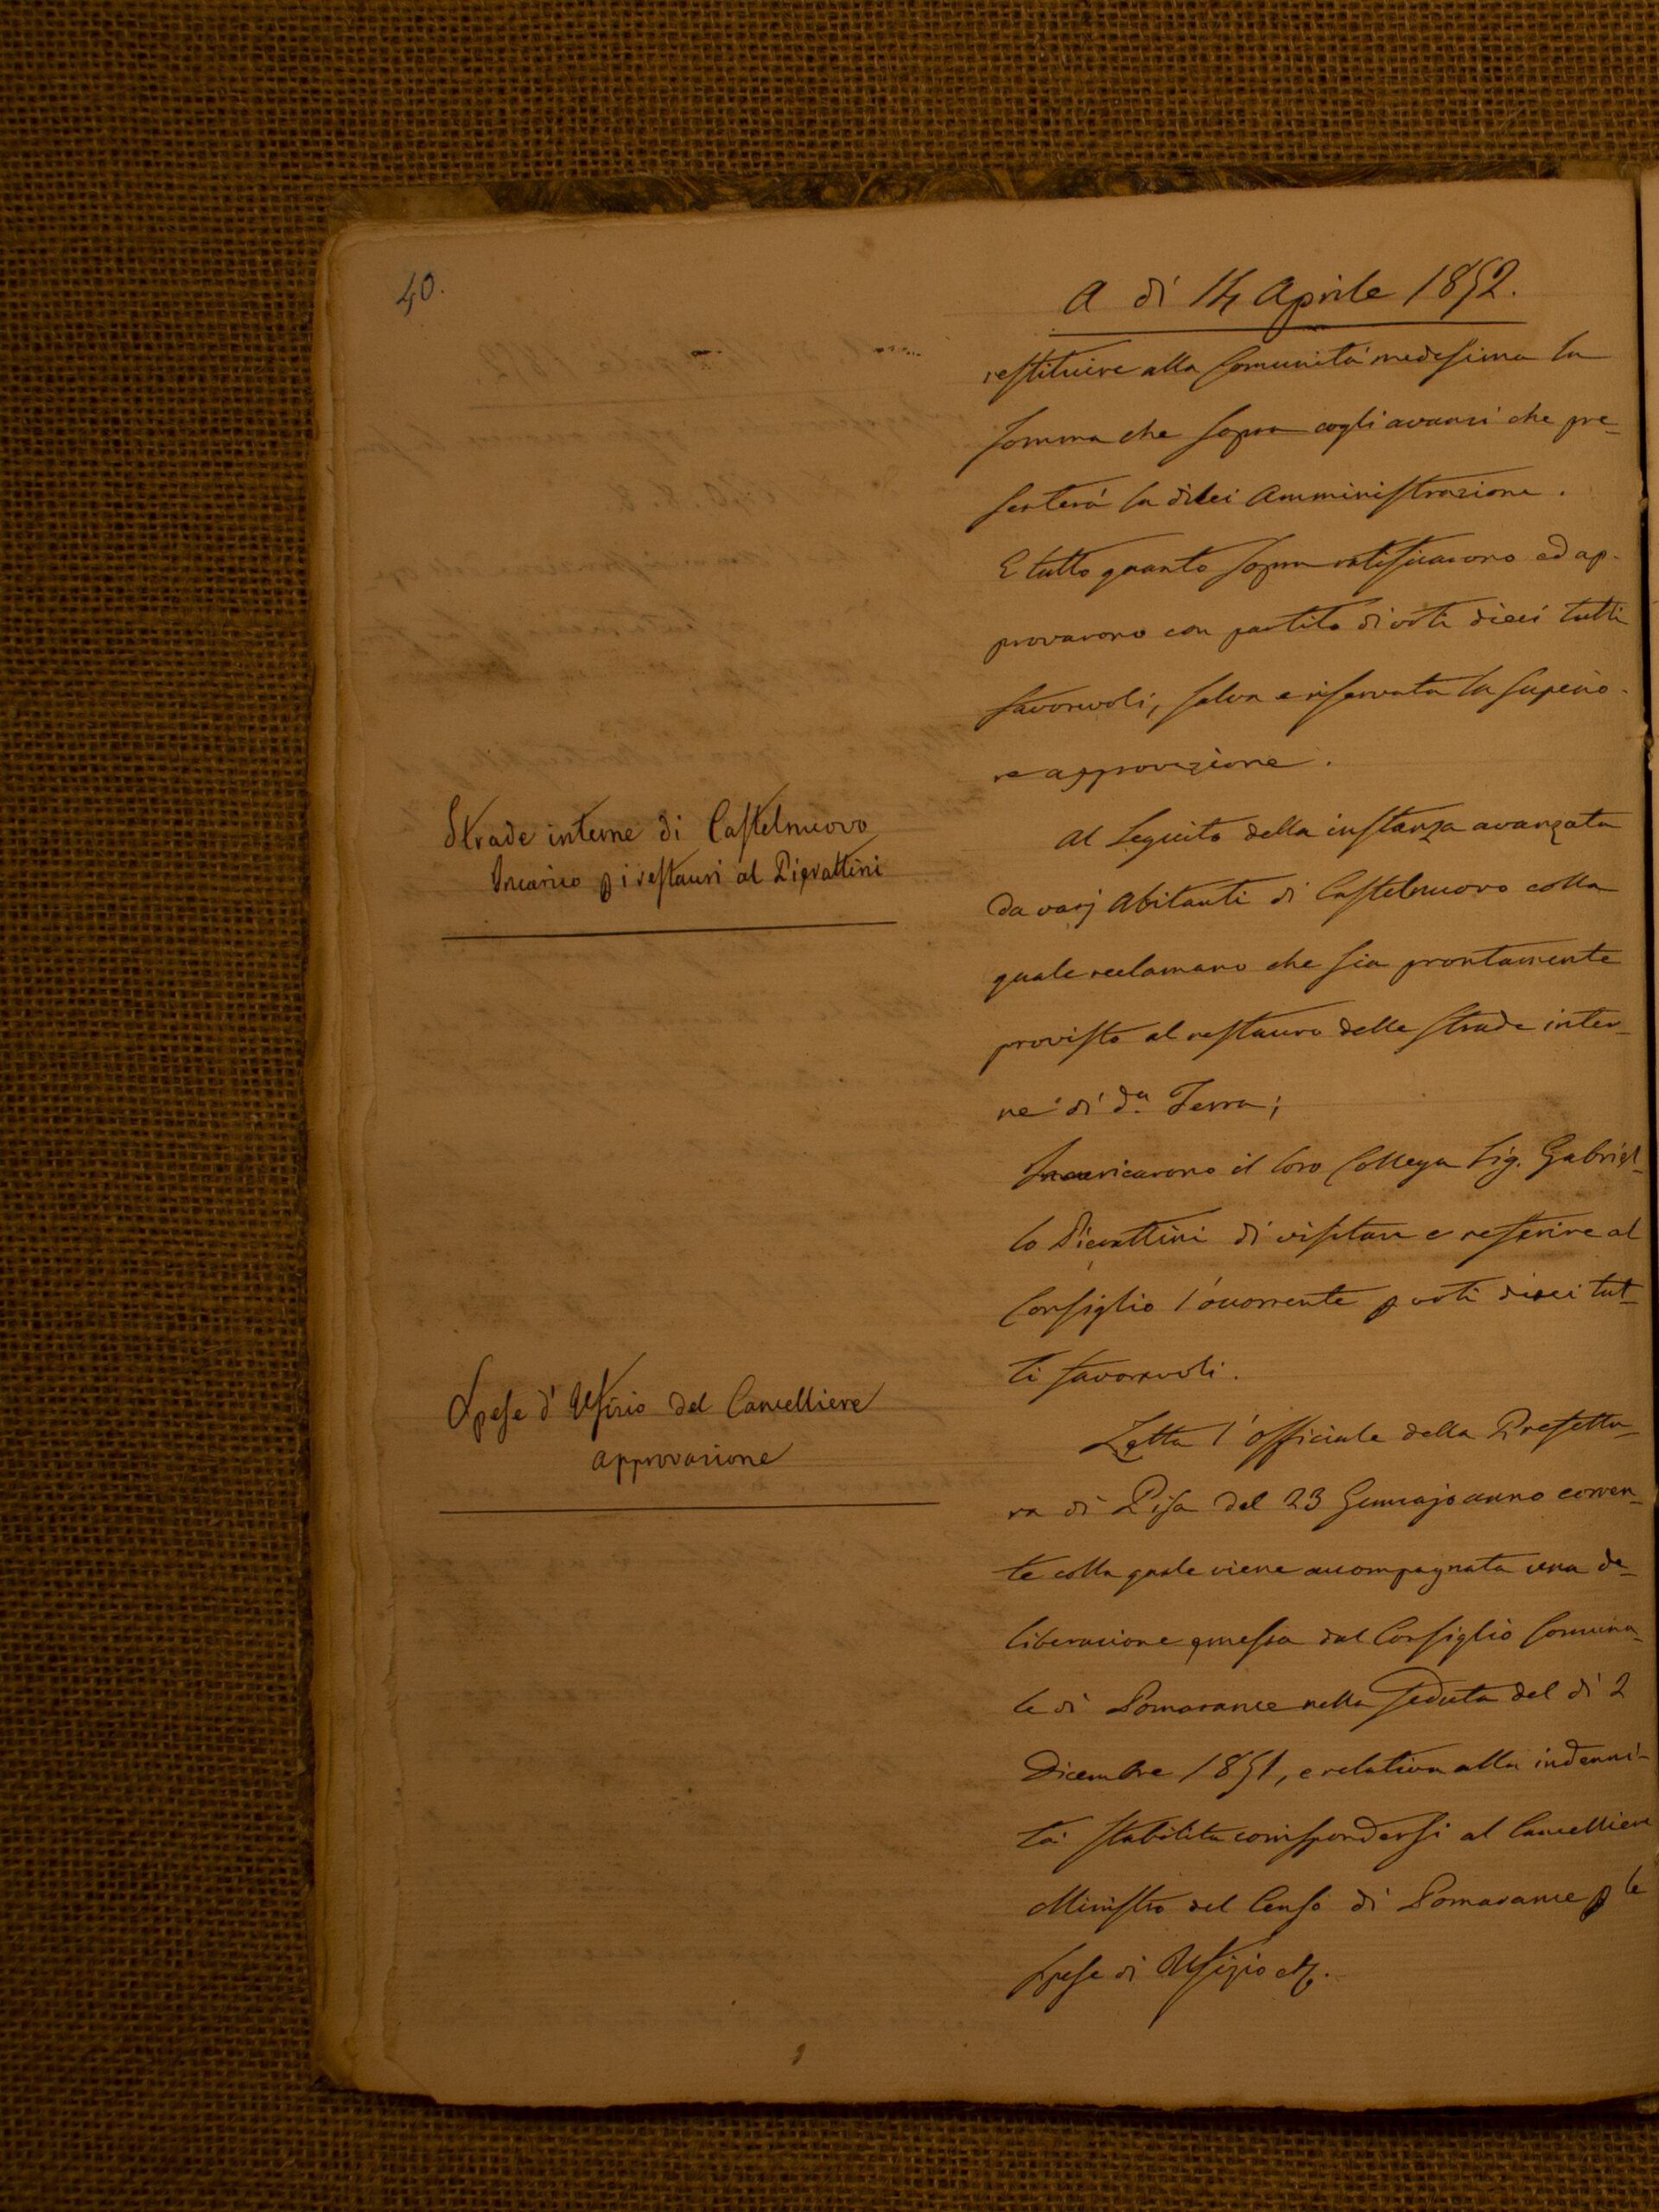 40.
A dì 14 Aprile 1852.
restituire alla Comunità medesima la
somma che sopra cogli avanzi che pre-
senterà la di lei Amministrazione.
E tutto quanto sopra ratificarono ed ap-
provarono con partito di voti dieci tutti
favorevoli, salva e riservata la superio-
re approvazione.
Strade interne di Castelnuovo
Incarico p i restauri al Pierattini
Al seguito della instanza avanzata
da varj Abitanti di Castelnuovo colla
quale reclamano che sia prontamente
provisto al restauro delle strade inter-
ne di da. Terra;
Incaricarono il loro Collega Sig. Gabriel-
lo Pierattini di visitare e referire al
Consiglio l'occorrente p voti dieci tut-
ti favorevoli.
Spese d'Ufizio del Cancelliere
approvazione
Letta l'officiale della Prefettu-
ra di Pisa del 23 Gennajo anno corren-
te colla quale viene accompagnata una de-
liberazione emessa dal Consiglio Comuna-
le di Pomarance nella seduta del dì 2
Dicembre 1851, e relativa alla indenni-
tà stabilita corrispondersi al Cancelliere
Ministro del Censo di Pomarance p le
spese di Ufizio